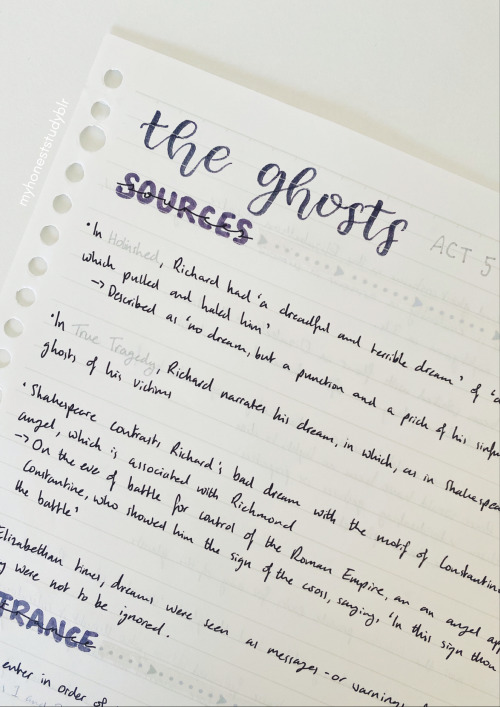 myhoneststudyblr
the ghosts
ACT 5
SOURCES
• In Holinshed, Richard had 'a dreadful and terrible dream' of
which pulled and haled him'
→ Described as 'no dream, but a punction and a prick of his sinful
• In True Tragedy, Richard narrates his dream, in which, as in Shakespea
ghosts of his victims
• Shakespeare contrasts Richard's bad dream with the motif of Constantine
angel, which is associated with Richmond
→ On the eve of battle for control of the Roman Empire, an an angel app
Constantine, who showed him the sign of the cross, saying, 'In this sign thou
the battle'
Elizabethan times, dreams were seen as messages - or warnings
y were not to be ignored.
TRANCE
enter in order of
1 and